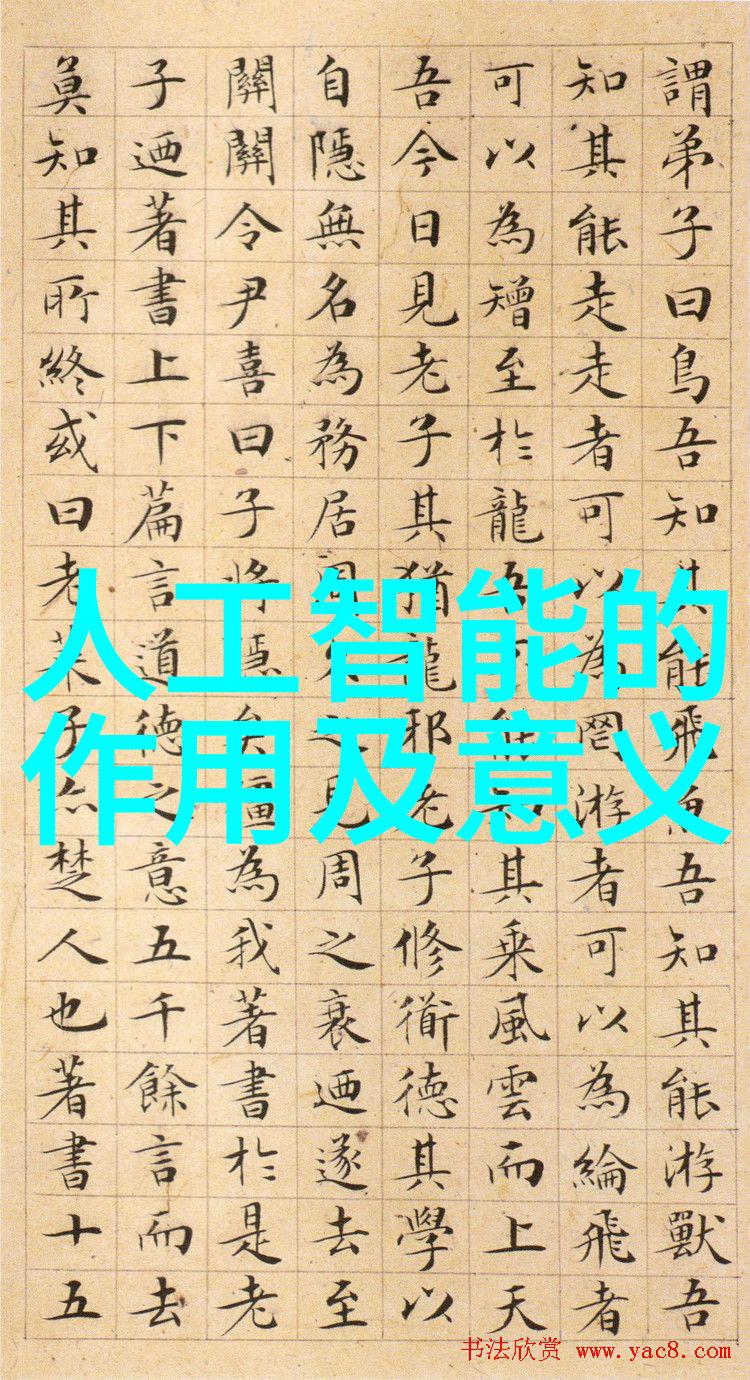 謂弟子曰鳥吾知其能飛魚吾知其能游獸吾
知其能走走者可以為罔游者可以為綸飛者
可以為矰至於龍吾不能知其乘風雲而上天
吾今日見老子其猶龍邪老子修衜德其學以
自隱無名為務居周久之見周之衰迺遂去至
關關令尹喜曰子將隱矣彊為我著書於是老
子迺著書上下篇言道德之意五千餘言而去
莫知其所終或曰老萊子亦楚人也著書十五
人工智能的
作用及意义
书法欣赏 www.yac8.com